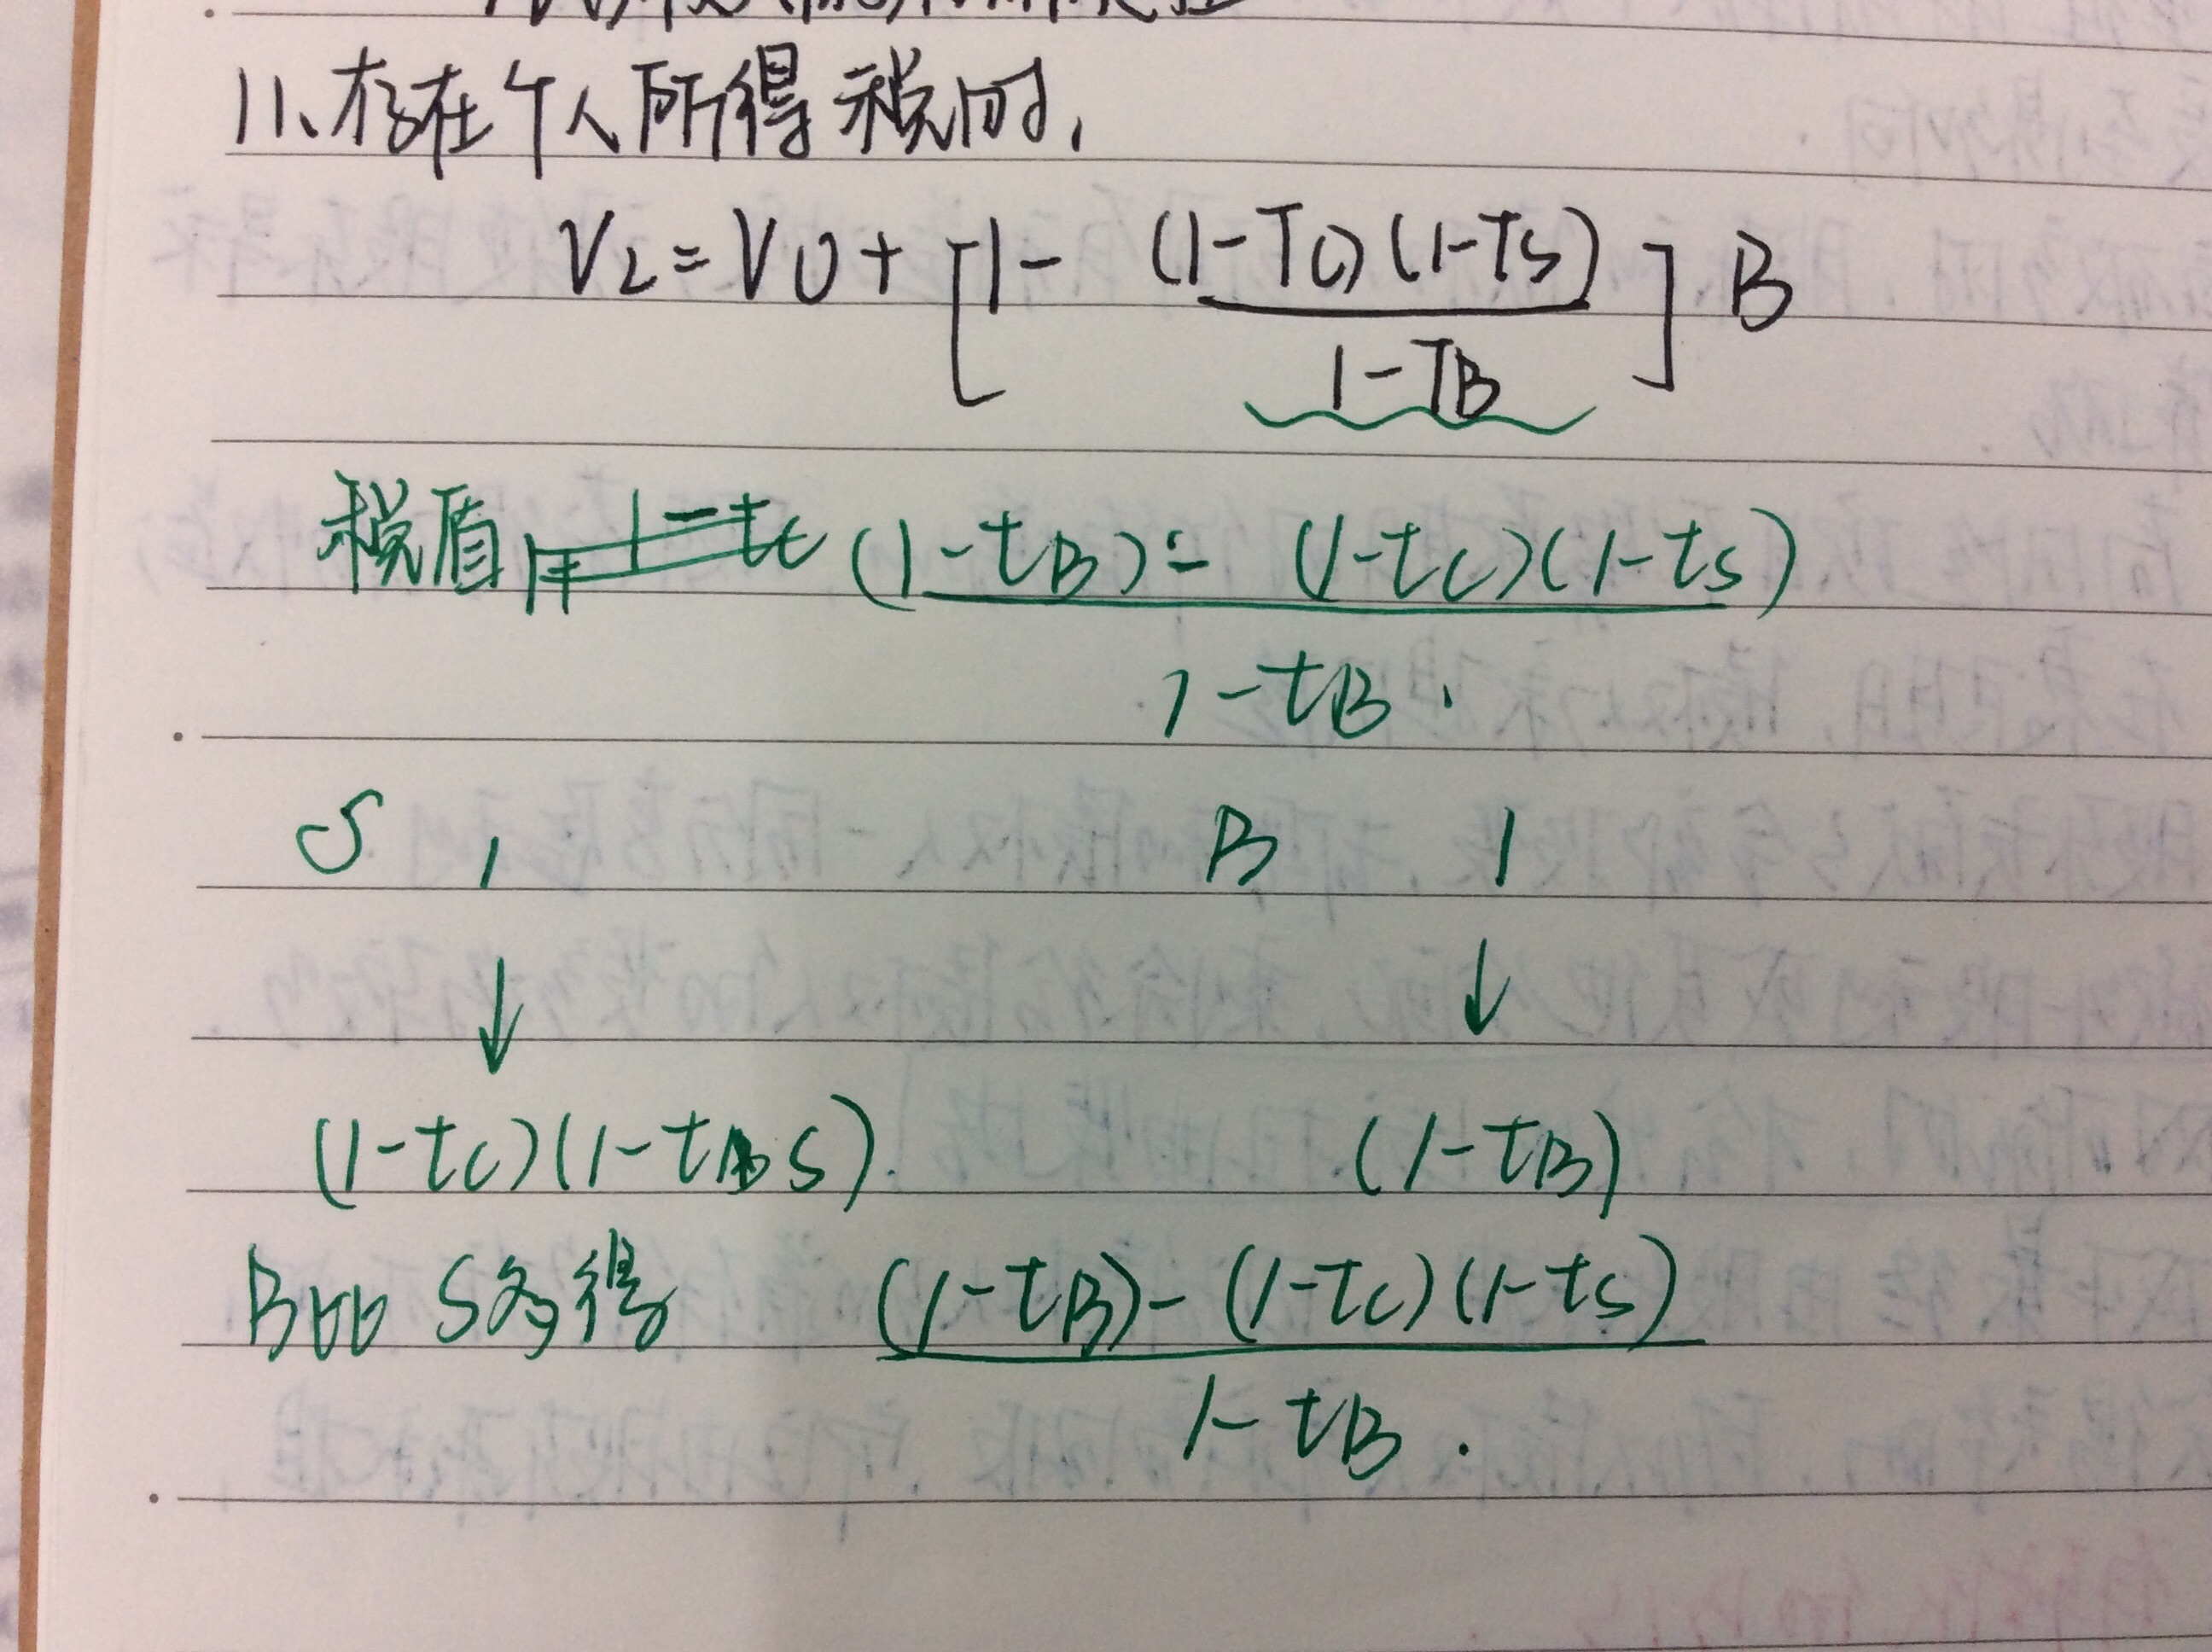 11、存在个人所得税时，
VL=VU+[1-(1-TC)(1-TS)
1-TB]B
税盾 1-tc (1-tB)-(1-tc)(1-ts)
1-tB.
S 1 B 1
↓ ↓
(1-tc)(1-tBS). (1-tB)
B比S多得 (1-tB)-(1-tc)(1-ts)
1-tB.